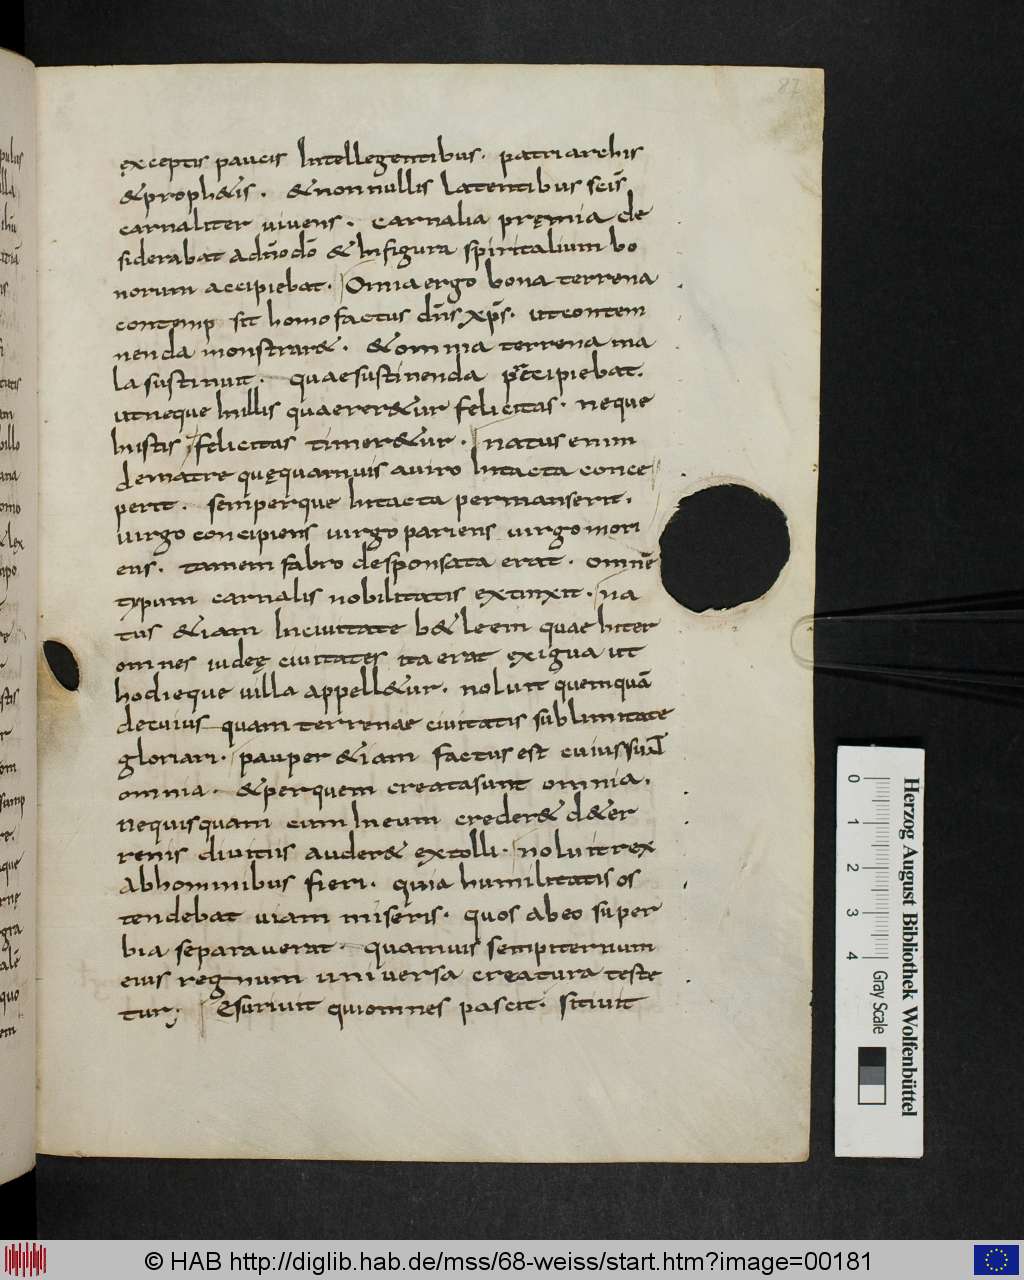 87
exceptis paucis intellegentibus. patriarchis
&proph&is. &nonnullis latentibus scīs
carnaliter uiuens. carnalia pręmia de
siderabat adn̄odō & infigura spiritalium bo
norum accipiebat. Omnia ergo bona terrena
contemp sit homo factus dn̄s xp̄s. utcontem
nenda monstrar&. & omnia terrena ma
la sustinuit. quae sustinenda praecipiebat.
utneque inillis quaerer&ur felicitas. neque
inistis infelicitas timer&ur. natus enim
dematre quęquamuis auiro intacta conce
perit. semperque intacta permanserit.
uirgo concipiens uirgo pariens uirgo mori
ens. tamen fabro desponsata erat. omnē
typum carnalis nobilitatis extinxit. na
tus &iam inciuitate b&leem quae inter
omnes iudeę ciuitates ita erat exigua ut
hodieque uilla appell&ur. noluit quemquā
decuius quam terrenae ciuitatis sublimitate
gloriari. pauper &iam factus est cuius sunt
omnia. &perquem creata sunt omnia.
nequisquam cum in eum creder& d&er
renis diuitiis auder& extolli. noluit rex
abhominibus fieri. quia humilitatis os
tendebat uiam miseris. quos abeo super
bia separauerat. quamuis sempiternum
eius regnum uniuersa creatura teste
tur; Esuriuit qui omnes pascit. sitiuit
Herzog August Bibliothek Wolfenbüttel
0 1 2 3 4 Gray Scale
© HAB http://diglib.hab.de/mss/68-weiss/start.htm?image=00181